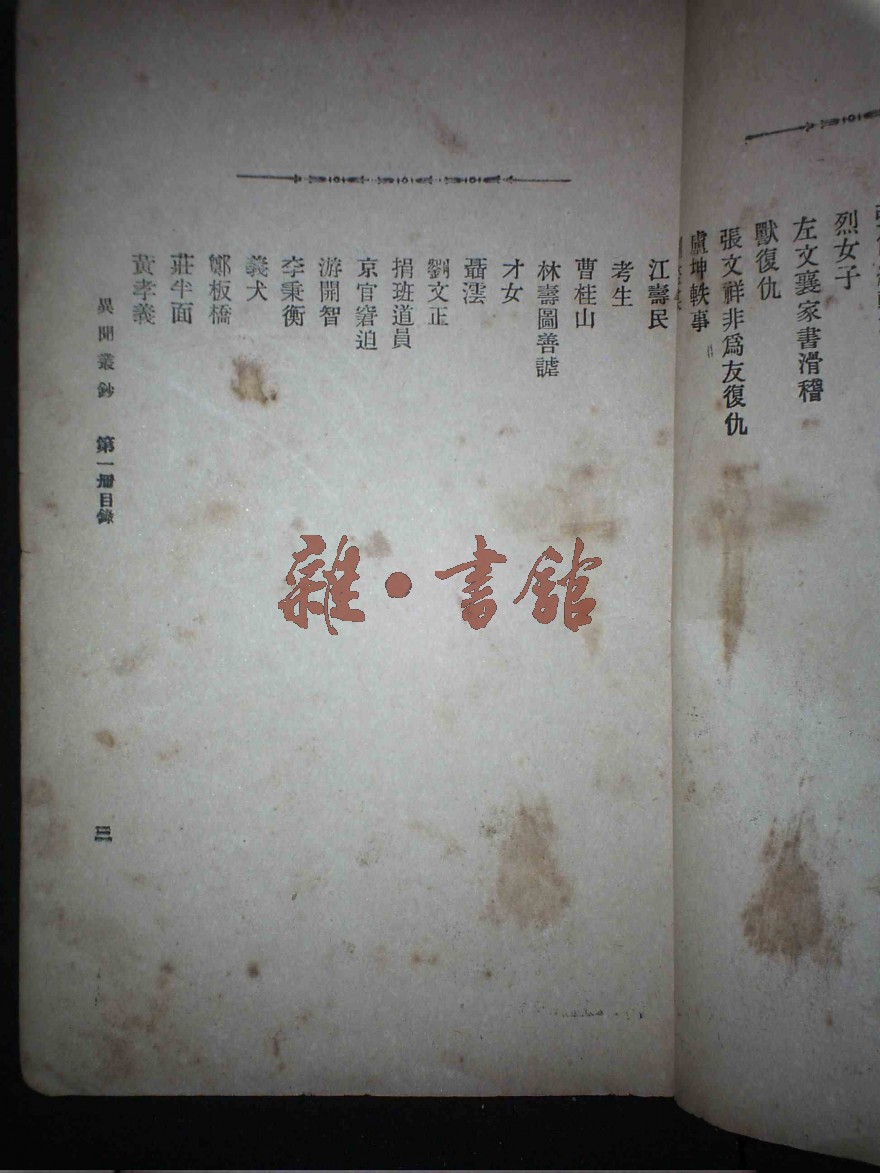 烈女子
左文襄家書滑稽
獸復仇
張文祥非爲友復仇
盧坤軼事
江壽民
考生
曹桂山
林壽圖善謔
才女
聶澐
劉文正
捐班道員
京官窘迫
游開智
李秉衡
義犬
鄭板橋
莊半面
黃孝義
異聞叢鈔 第一册目錄 三
雜·書館